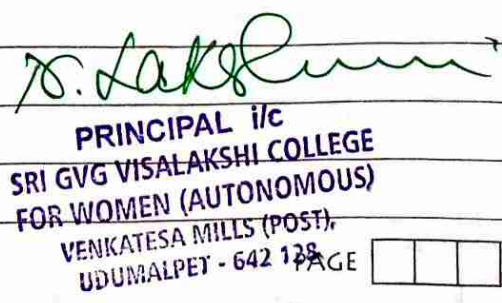 N. Lakshmi
PRINCIPAL i/c
SRI GVG VISALAKSHI COLLEGE
FOR WOMEN (AUTONOMOUS)
VENKATESA MILLS (POST),
UDUMALPET - 642 128
PAGE